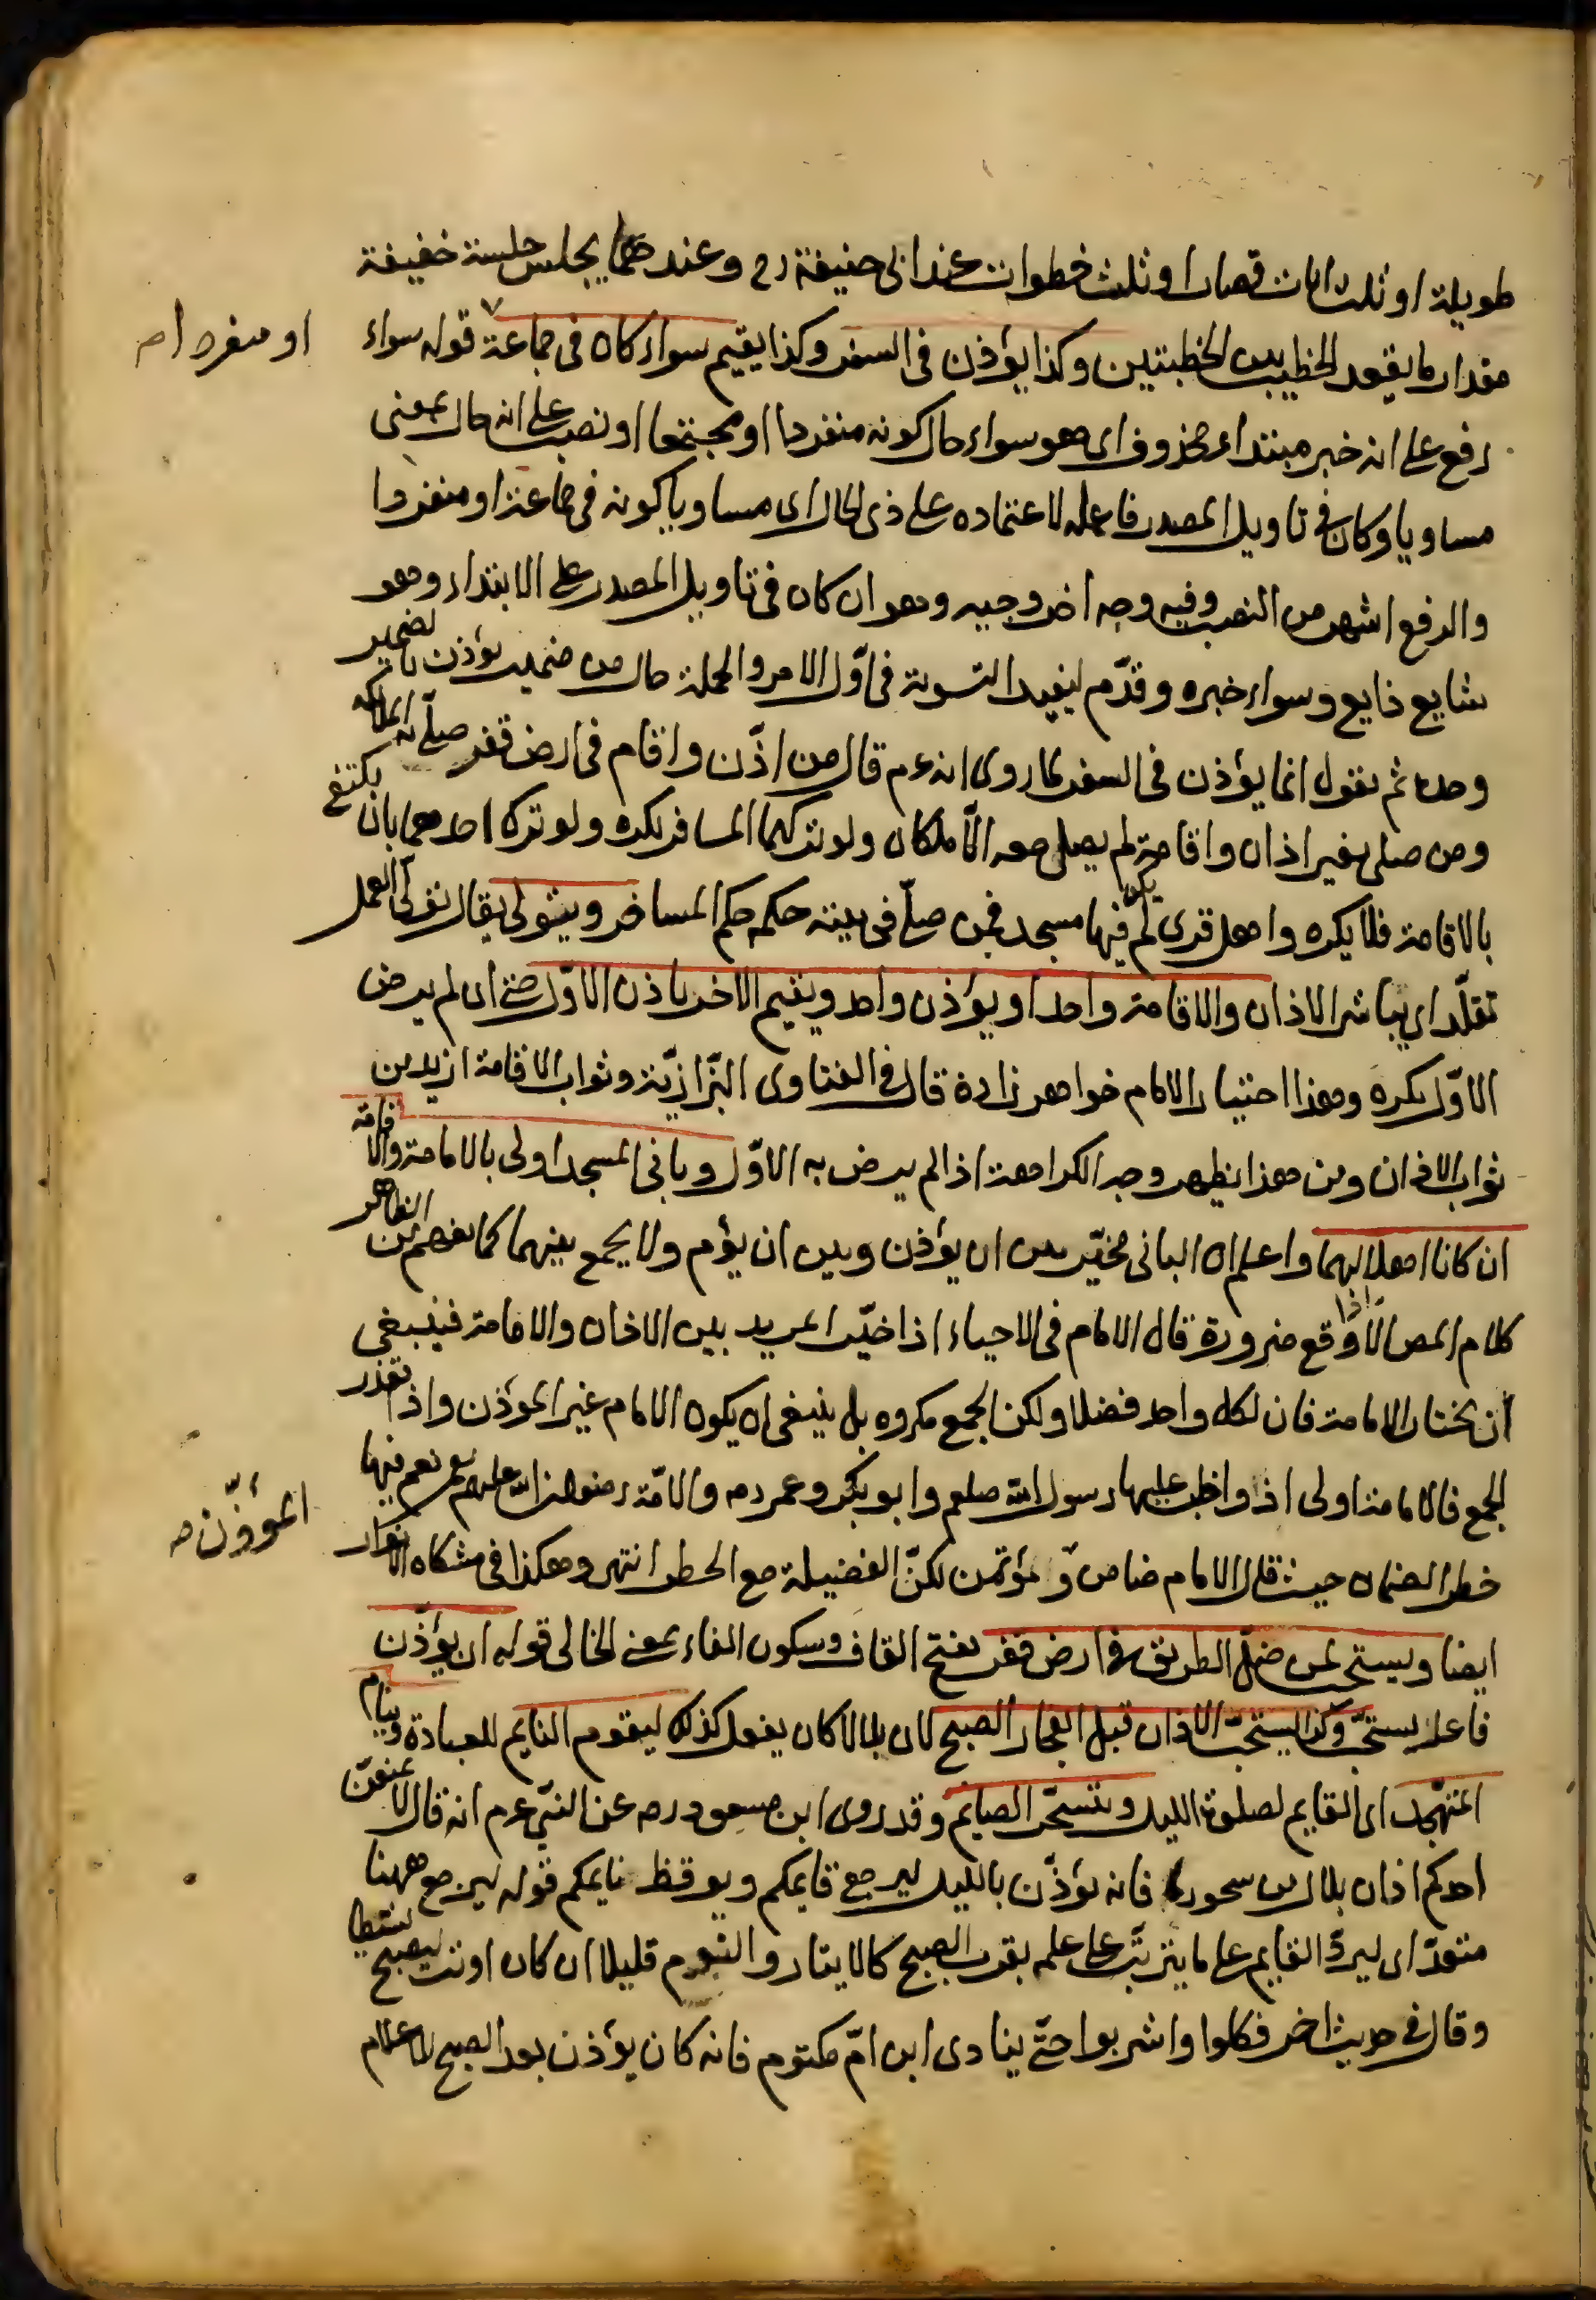 طويلة او ثلث ايات قصار او ثلث خطوات عند ابى حنيفة رح وعندهما يجلس جلسة خفيفة
مقدار ما يقعد الخطيب بين الخطبتين وكذا يؤذن فى السفر وكذا يقيم سواء كان فى جماعة قوله سواء
او منفردا م
رفع على انه خبر مبتداء محذوف اى هو سواء حال كونه منفردا او مجتمعا او نصب على انه حال بمعنى
مساويا وكان فى تاويل المصدر فاعله لاعتماده على ذى الحال اى مساويا كونه فى جماعة او منفردا
والرفع اشهر من النصب وفيه وجه اخر وجيه وهو ان كان فى تاويل المصدر على الابتداء وهو
شايع ذايع وسواء خبره وقدّم ليفيد التسوية فى اوّل الامر والجملة حال من ضمير يؤذن لا لضمير
وحده ثم نقول انما يؤذن فى السفر لما روى انه ع م قال من اذّن واقام فى ارض قفر صلّى به الملائكة
ومن صلى بغير اذان واقامة لم يصل معه الّا ملكان ولو تركهما المسافر يكره ولو ترك احدهما بان يكتفى
بالاقامة فلا يكره واهل قرى لم يكن فيها مسجد فمن صلّى فى بيته حكمه حكم المسافر ويتولى يقال تولى العمل
تقلّد اى يباشر الاذان والاقامة واحد او يؤذن واحد ويقيم الاخر باذن الاوّل حتى ان لم يرض
الاوّل يكره وهذا اختيار الامام خواهر زاده قال فى الفتاوى البزّازيّة وثواب الاقامة ازيد من
ثواب الاذان ومن هذا يظهر وجه الكراهة اذا لم يرض به الاوّل وبانى المسجد اولى بالامامة والاقامة
ان كانا اهلا لهما واعلم ان البانى مخيّر بين ان يؤذن وبين ان يؤم ولا يجمع بينهما كما يفهم من الظاهر
كلام المص الّا اذا وقع ضرورة قال الامام فى الاحياء اذا خيّر المريد بين الاذان والامامة فينبغى
ان يختار الامامة فان لكل واحد فضلا ولكن الجمع مكروه بل ينبغى ان يكون الامام غير المؤذن واذا تعذر
الجمع فالامامة اولى اذ واظب عليها رسول الله صلعم وابو بكر وعمر رصه والائمّة رضوان الله عليهم نعم فيها
خطر الضمان حيث قال الامام ضامن و مؤتمن لكنّ الفضيلة مع الخطر انتهى وهكذا فى مشكاة الانوار
المؤذّن م
ايضا ويستحب لمن ضلّ الطريق فى ارض قفر بفتح القاف وسكون الفاء بمعنى الخالى قوله ان يؤذّن
فاعل يستحبّ وكذا يستحبّ الاذان قبل انفجار الصبح لان بلالا كان يفعل كذلك ليقوم النايم للعبادة وينام
المتهجّد اى القايم لصلوة الليل ويتسحّر الصايم وقد روى ابن مسعود رصه عن النبى ع م انه قال لا يمنعن
احدكم اذان بلال من سحوره فانه يؤذّن بالليل ليرجع قايمكم ويوقظ نايمكم قوله ليرجع ههنا
متعدّ اى ليردّ القايم على ما يترتّب على علمه بقرب الصبح كالايتار والنوم قليلا ان كان او تر ليصبح نشيطا
وقال فى حديث اخر فكلوا واشربوا حتّى ينادى ابن امّ مكتوم فانه كان يؤذن بعد الصبح للاعلام